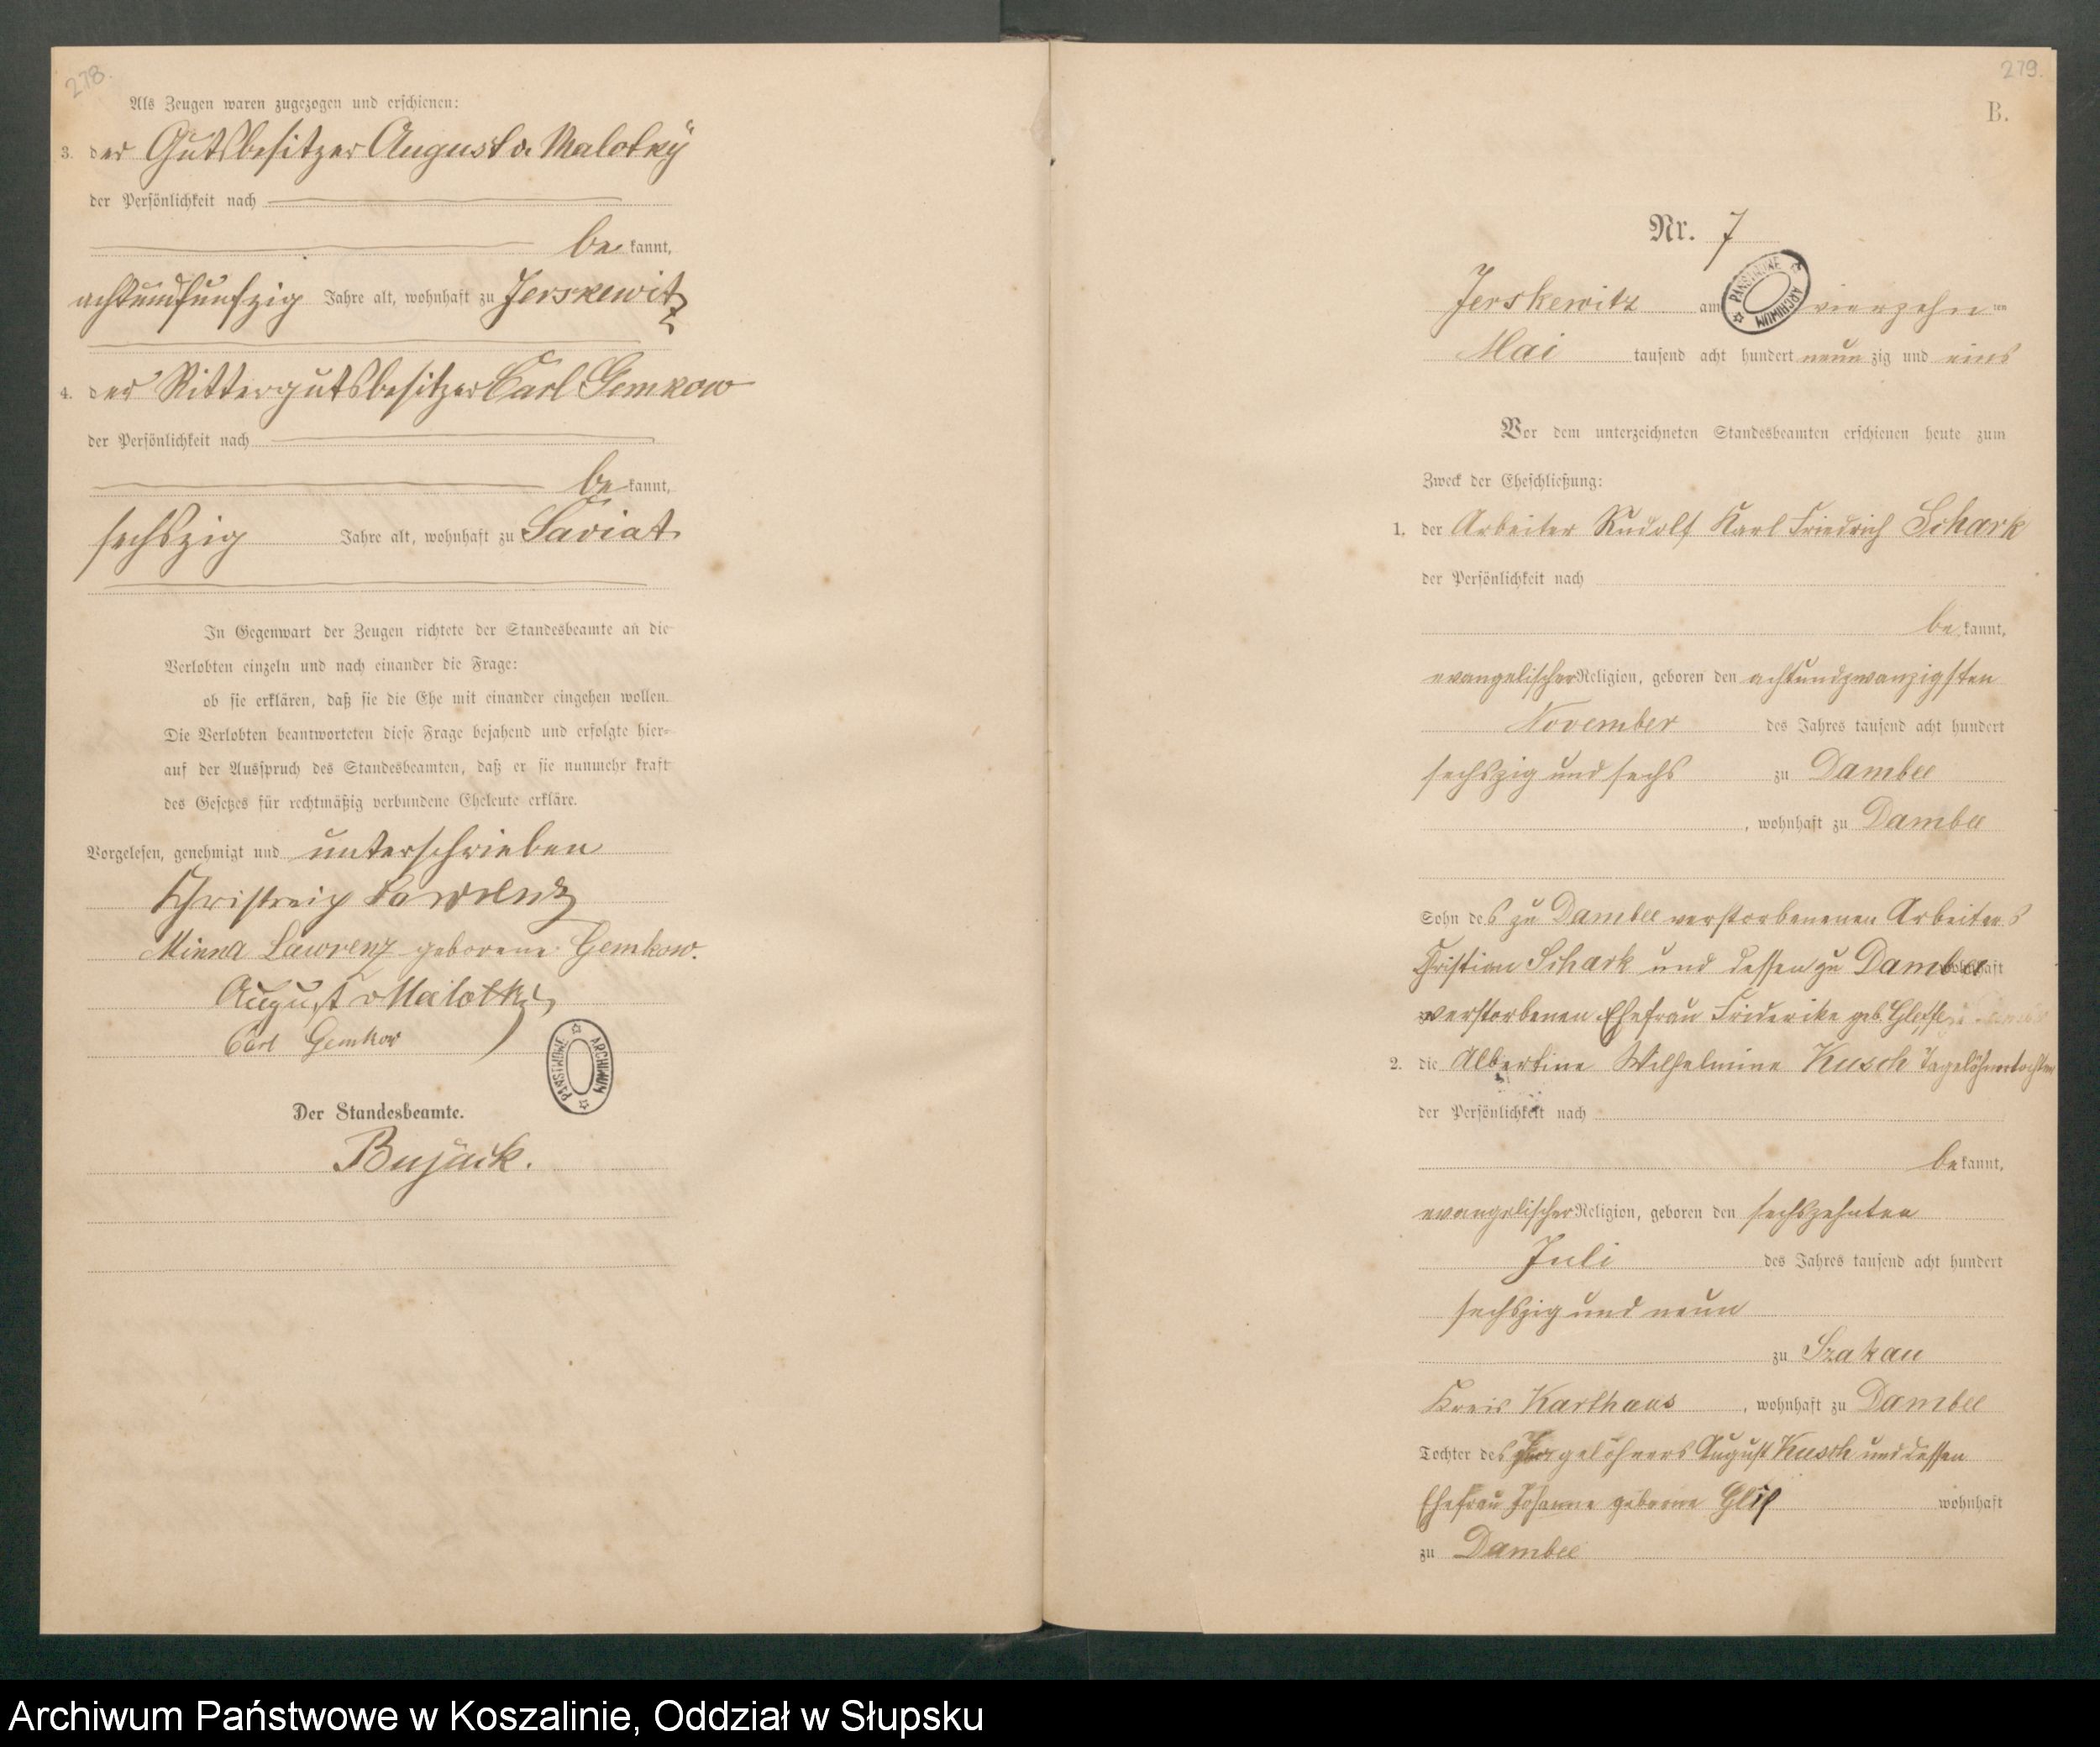 278.
Als Zeugen waren zugezogen und erschienen:
3. der Gutsbesitzer August v. Malotky
der Persönlichkeit nach
be kannt,
achtundfünfzig Jahre alt, wohnhaft zu Jerskewitz
4. der Rittergutsbesitzer Carl Gemkow
der Persönlichkeit nach
be kannt,
sechszig Jahre alt, wohnhaft zu Saviat
In Gegenwart der Zeugen richtete der Standesbeamte an die
Verlobten einzeln und nach einander die Frage:
ob sie erklären, daß sie die Ehe mit einander eingehen wollen.
Die Verlobten beantworteten diese Frage bejahend und erfolgte hier-
auf der Ausspruch des Standesbeamten, daß er sie nunmehr kraft
des Gesetzes für rechtmäßig verbundene Eheleute erkläre.
Vorgelesen, genehmigt und unterschrieben
Lawrenz
Minna Lawrenz geborene Gemkow.
August v Malotky
Carl Gemkow
PAŃSTWOWE ARCHIWUM
Der Standesbeamte.
Bujack.
279.
B.
Nr. 7
PAŃSTWOWE ARCHIWUM
Jerskewitz am vierzehn ten
Mai tausend acht hundert neun zig und eins
Vor dem unterzeichneten Standesbeamten erschienen heute zum
Zweck der Eheschließung:
1. der Arbeiter Rudolf Karl Friedrich Schark
der Persönlichkeit nach
be kannt,
evangelischer Religion, geboren den achtundzwanzigsten
November des Jahres tausend acht hundert
sechszig und sechs zu Dambee
, wohnhaft zu Dambee
Sohn des zu Dambee verstorbenenen Arbeiters
Christian Schark und dessen zu Dambee wohnhaft
verstorbenen Ehefrau Friderike geb.
2. die Albertine Wilhelmine Kusch Tagelöhnertochter
der Persönlichkeit nach
be kannt,
evangelischer Religion, geboren den sechszehnten
Juli des Jahres tausend acht hundert
sechszig und neun
zu Szakau
Kreis Karthaus , wohnhaft zu Dambee
Tochter des Tagelöhners August Kusch und dessen
Ehefrau Johanne geborne wohnhaft
zu Dambee
Archiwum Państwowe w Koszalinie, Oddział w Słupsku